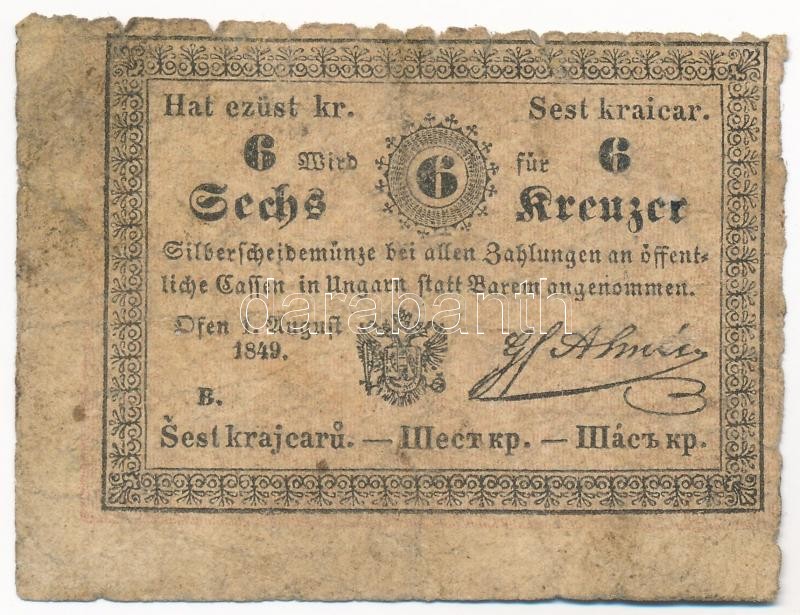 Hat ezüst kr. Sest kraicar.
6 Wird 6 für 6
Sechs Kreuzer
Silberscheidemünze bei allen Zahlungen an öffent-
liche Cassen in Ungarn statt Barem angenommen.
Ofen 1. August
1849.
B.
Šest krajcarů. — Шест кр. — Шáсъ кр.
darabanth